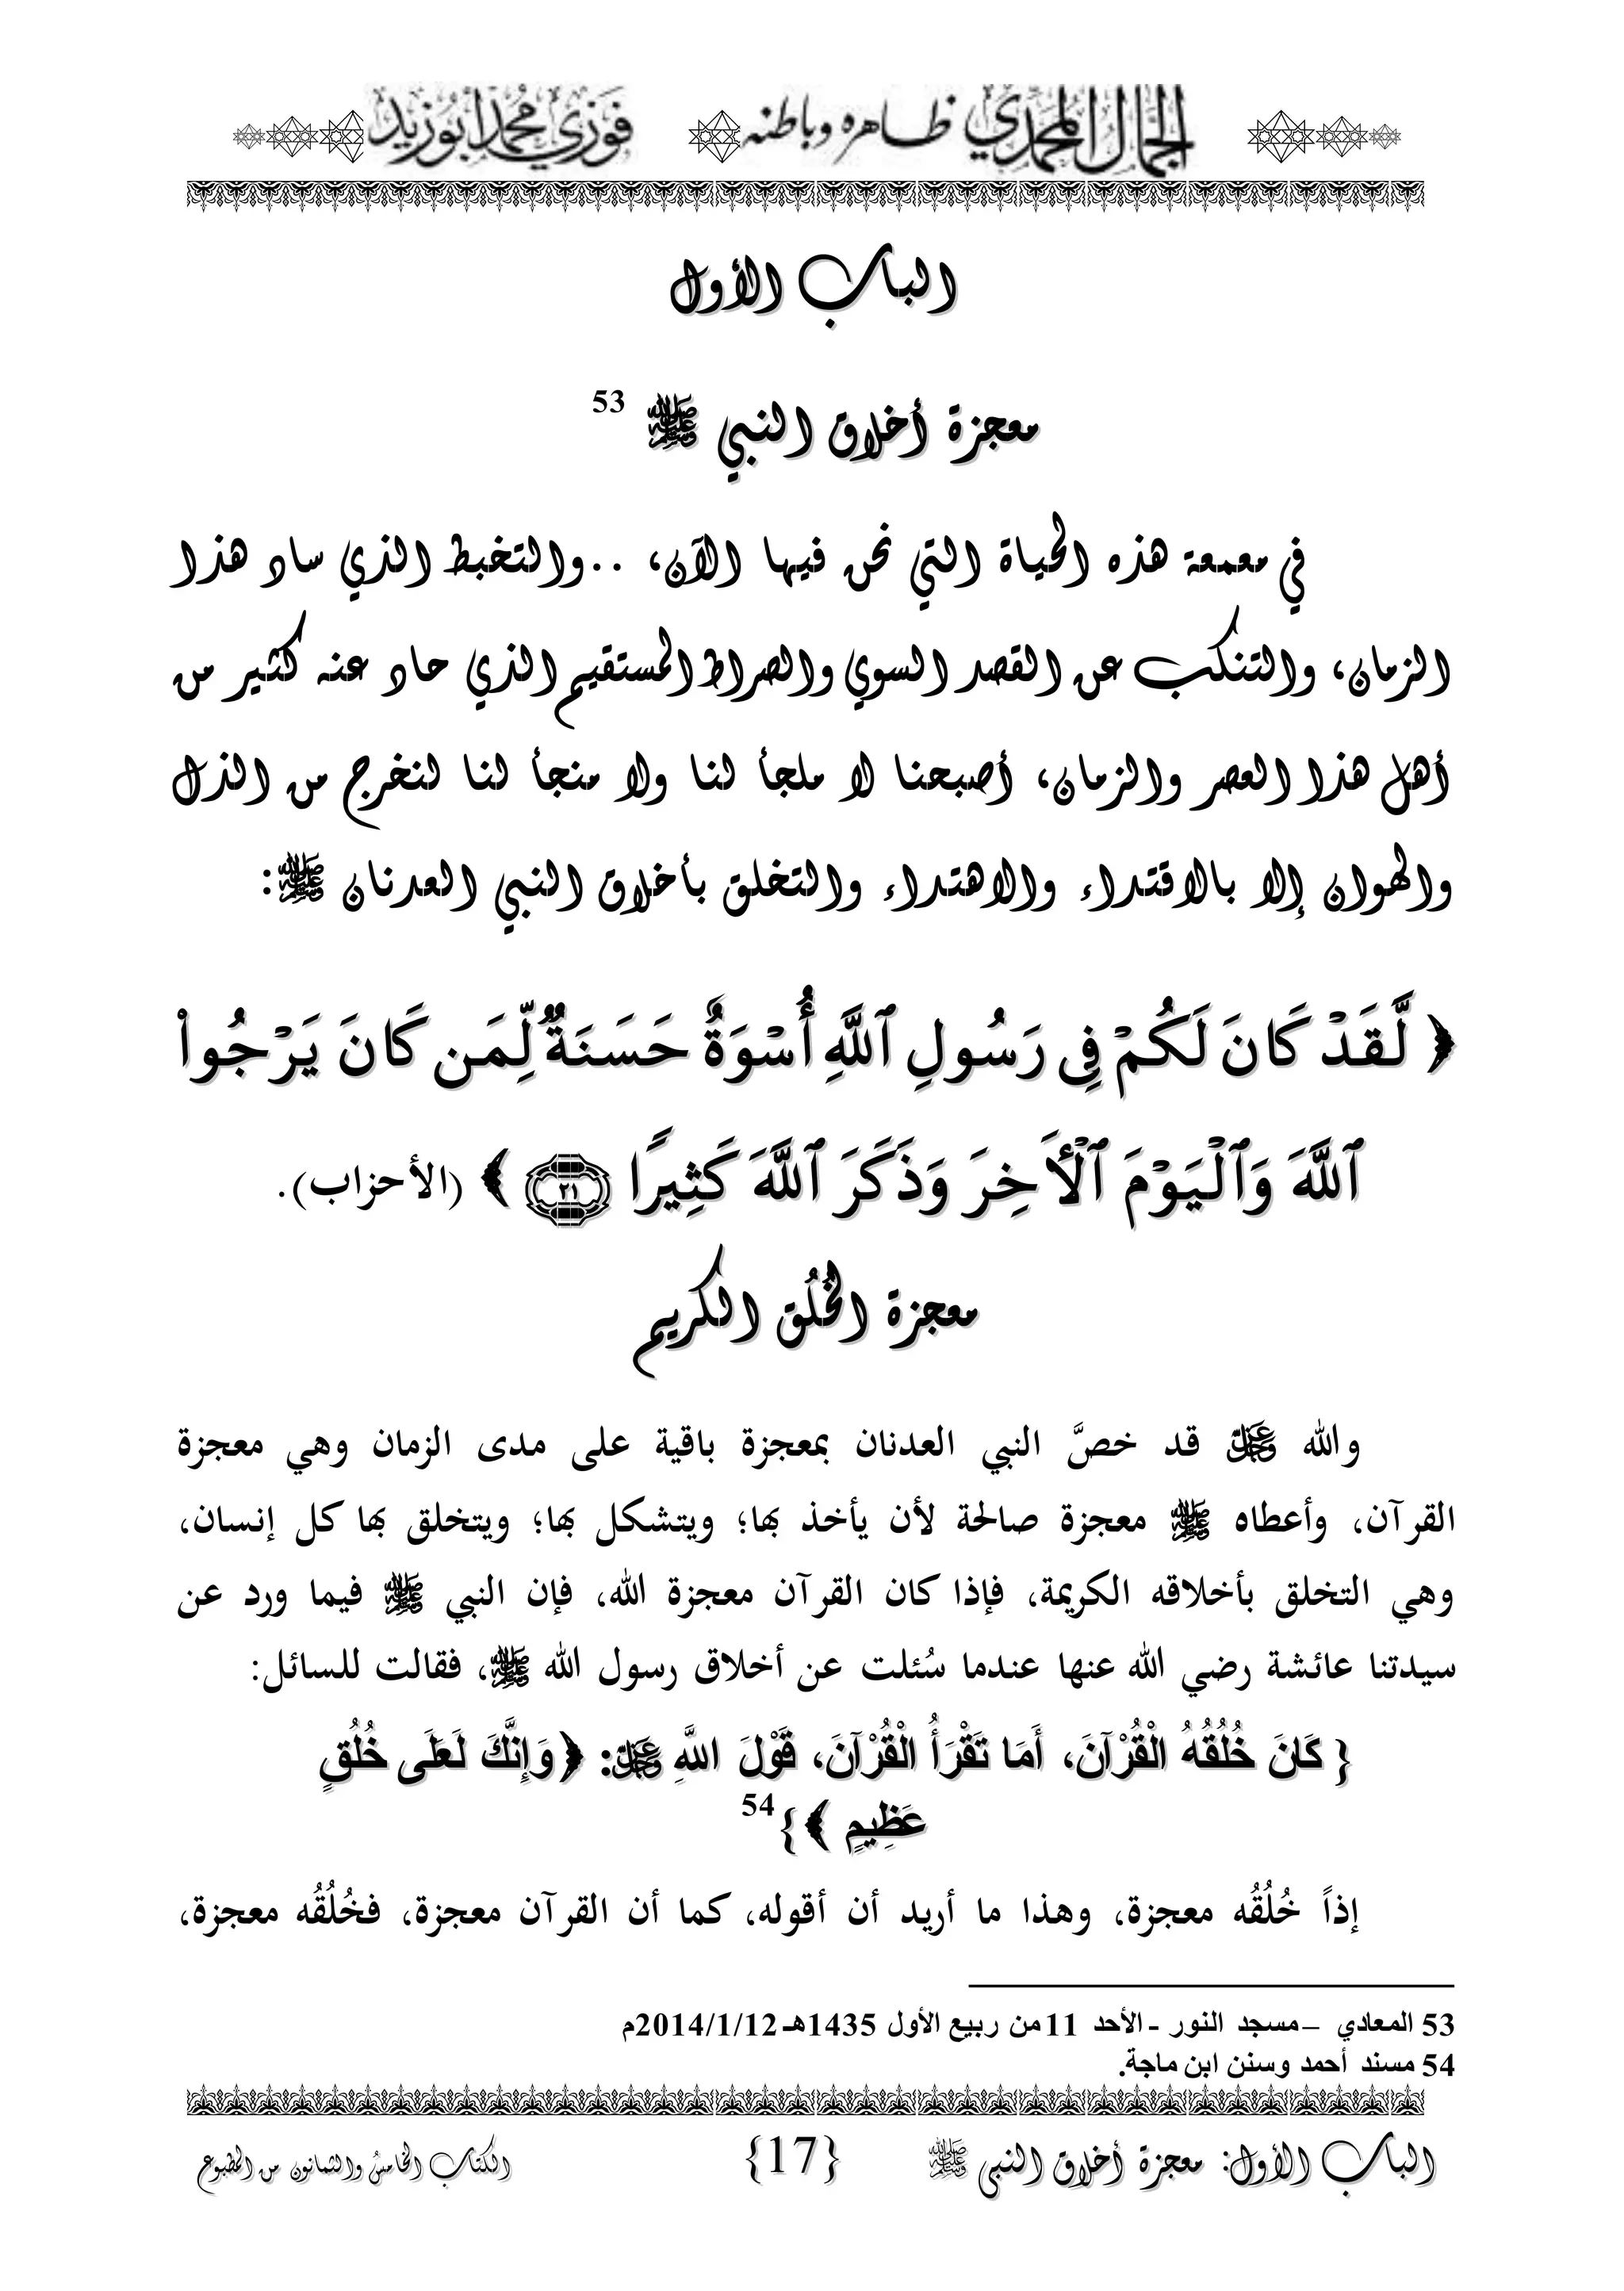 الجمال المحمدي ظاهره وباطنه فوزي محمد أبوزيد
الباب الأول
معجزة أخلاق النبي ﷺ 53
في معمعة هذه الحياة التي نحن فيها الآن، ..والتخبط الذي ساد هذا
الزمان، والتنكب عن القصد السوي والصراط المستقيم الذي حاد عنه كثير من
أهل هذا العصر والزمان، أصبحنا لا ملجأ لنا ولا منجأ لنا لنخرج من الذل
والهوان إلا بالاقتداء والاهتداء والتخلق بأخلاق النبي العدنان ﷺ:
﴿ لَّقَدْ كَانَ لَكُمْ فِى رَسُولِ ٱللَّهِ أُسْوَةٌ حَسَنَةٌ لِّمَن كَانَ يَرْجُوا۟
ٱللَّهَ وَٱلْيَوْمَ ٱلْأَخِرَ وَذَكَرَ ٱللَّهَ كَثِيرًا ٢١ ﴾ (الأحزاب).
معجزة الخُلُق الكريم
والله ﷻ قد خصَّ النبي العدنان بمعجزة باقية على مدى الزمان وهي معجزة
القرآن، وأعطاه ﷺ معجزة صالحة لأن يأخذ بها؛ ويتشكل بها؛ ويتخلق بها كل إنسان،
وهي التخلق بأخلاقه الكريمة، فإذا كان القرآن معجزة الله، فإن النبي ﷺ فيما ورد عن
سيدتنا عائشة رضي الله عنها عندما سُئلت عن أخلاق رسول الله ﷺ، فقالت للسائل:
{ كَانَ خُلُقُهُ الْقُرْآنَ، أَمَا تَقْرَأُ الْقُرْآنَ، قَوْلَ اللَّهِ ﷻ: ﴿ وَإِنَّكَ لَعَلَى خُلُقٍ
عَظِيمٍ ﴾}54
إذاً خُلُقُه معجزة، وهذا ما أريد أن أقوله، كما أن القرآن معجزة، فخُلُقُه معجزة،
53 المعادي – مسجد النور - الأحد 11 من ربيع الأول 1435هـ 2014/1/12م
54 مسند أحمد وسنن ابن ماجة.
الباب الأول: معجزة أخلاق النبى ﷺ {17} الكتاب الخامسُ والثمانون من المطبوع